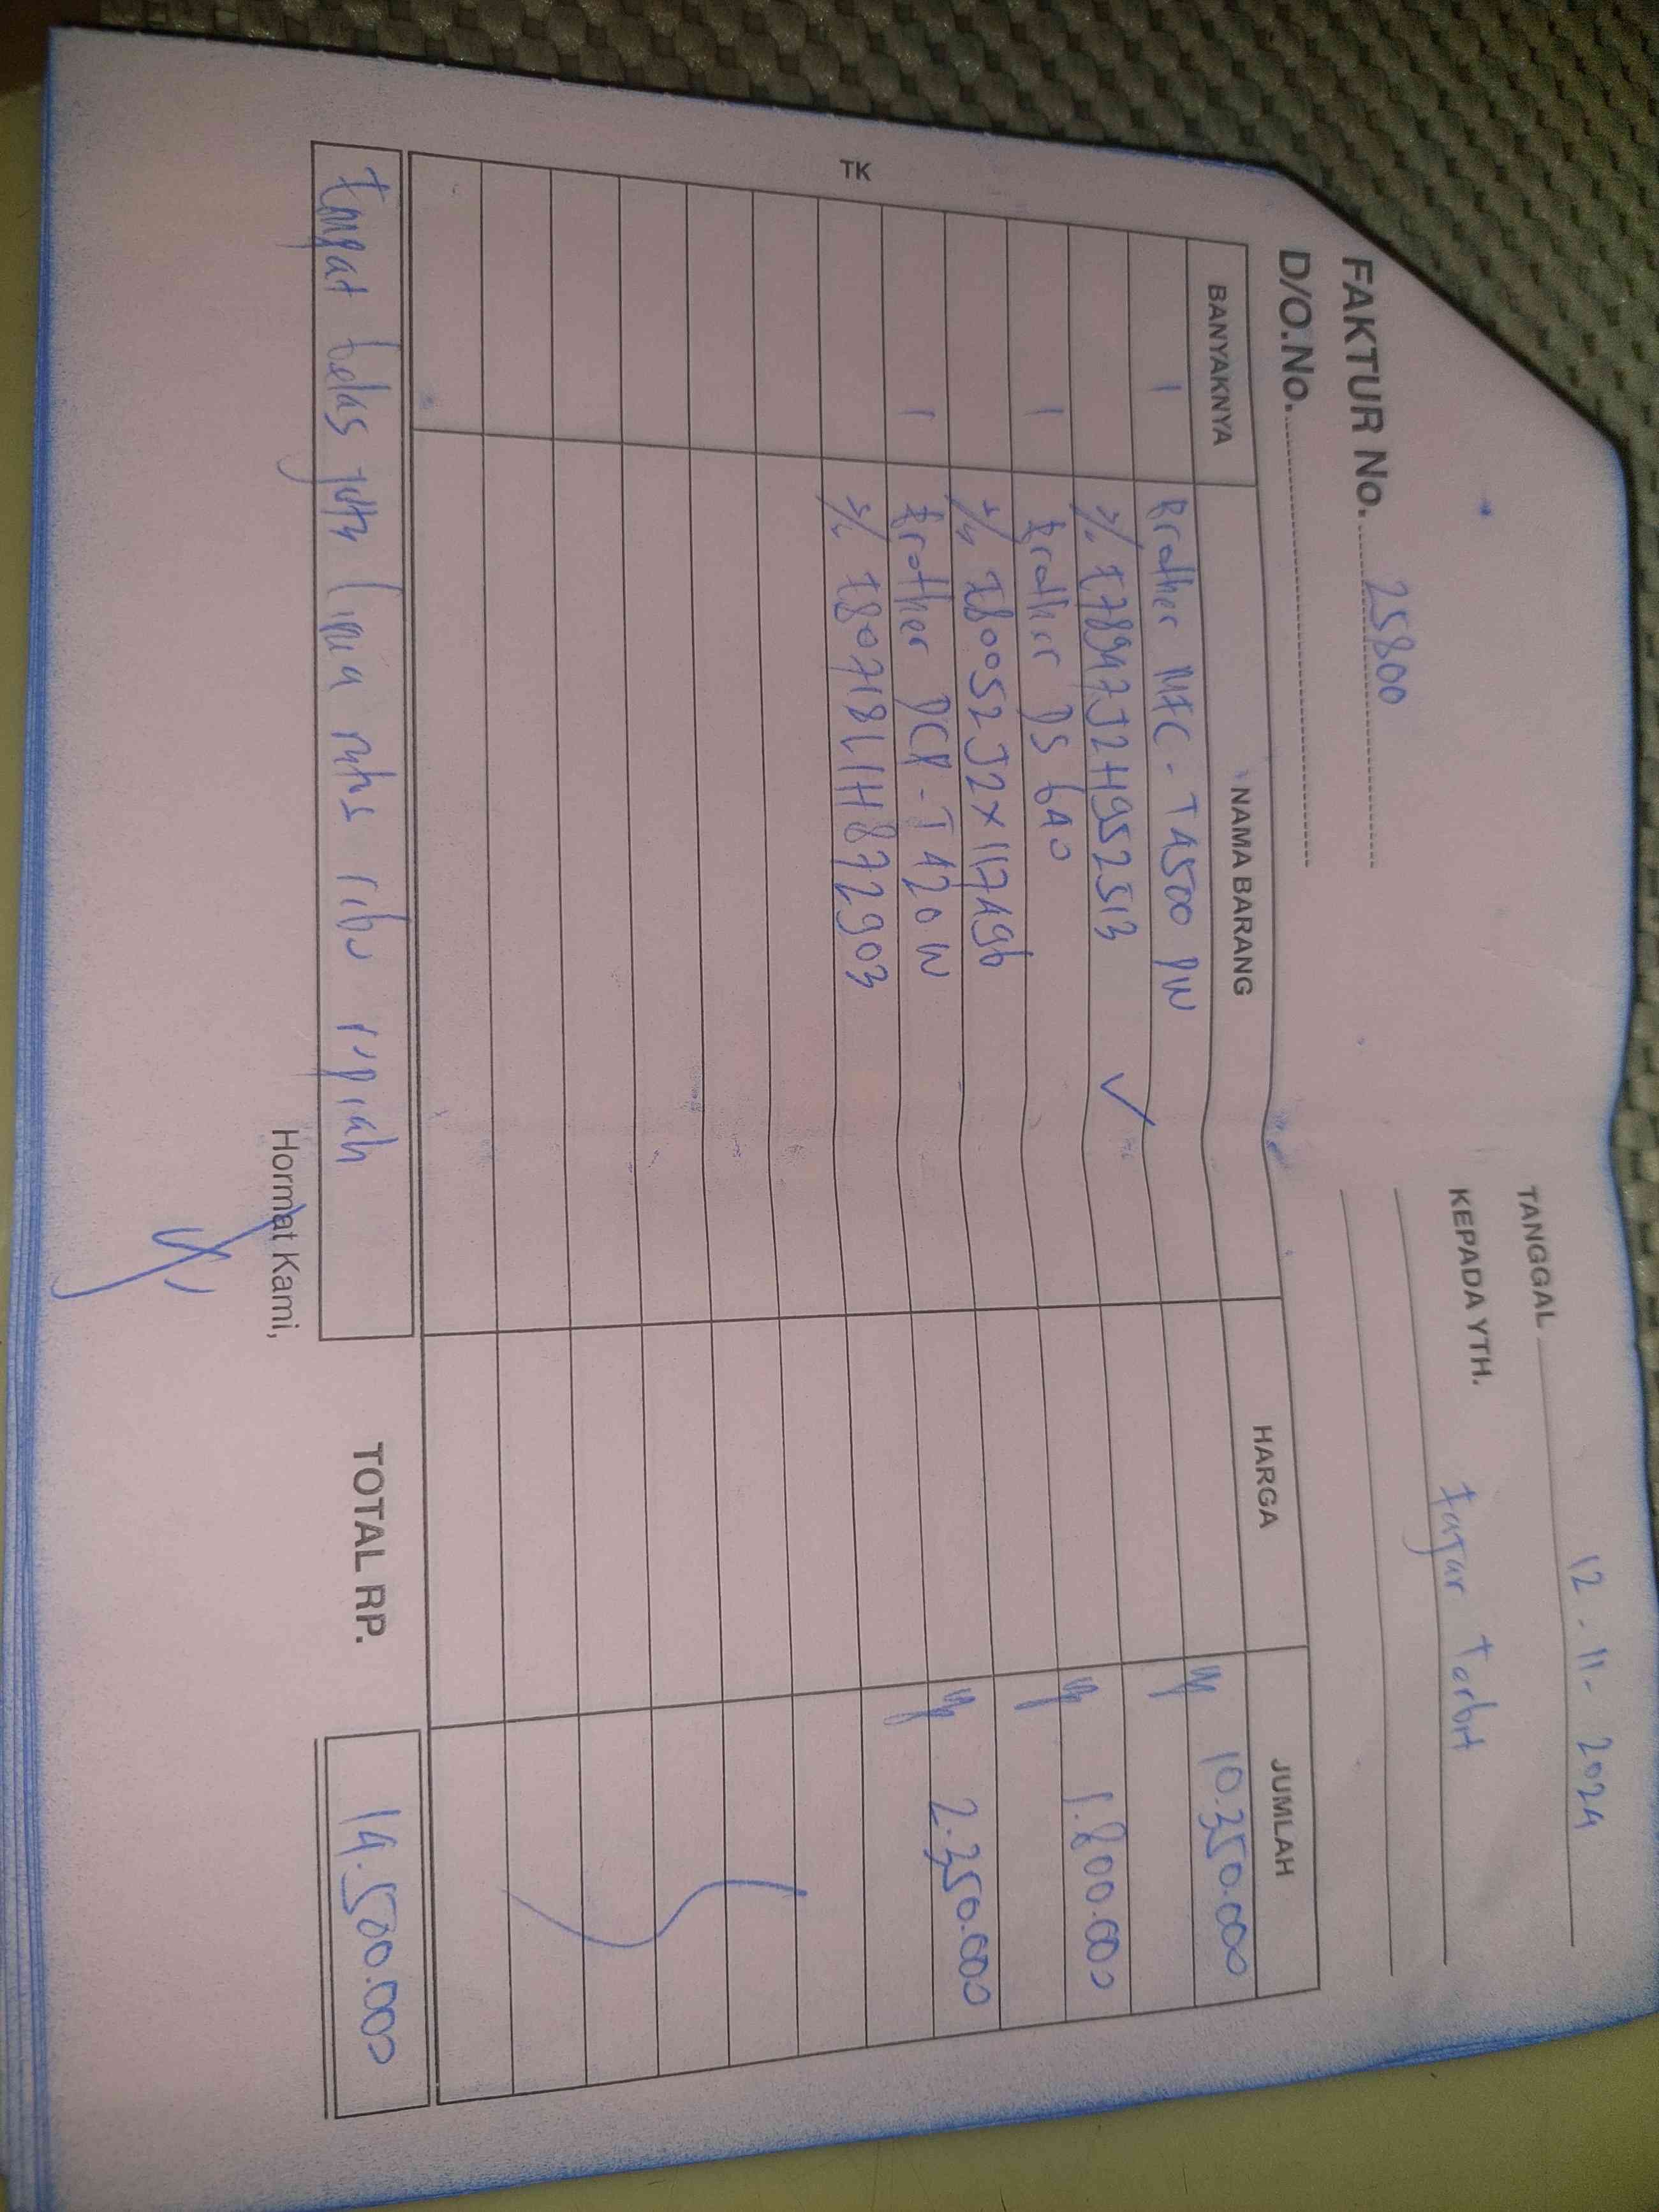 FAKTUR No. 25800
D/O.No.
TANGGAL 12-11-2024
KEPADA YTH. Fajar Terbit
BANYAKNYA NAMA BARANG HARGA JUMLAH
1 Brother MFC-T4500 DW Rp 10.350.000
S/N E78947J2H952513 ✓
1 Brother DS 640 Rp 1.800.000
S/N E80052J2X117496
1 Brother DCP-T420W Rp 2.350.000
S/N E80718L1H872903
TK
Empat belas juta lima ratus ribu rupiah
TOTAL RP. 14.500.000
Hormat Kami,